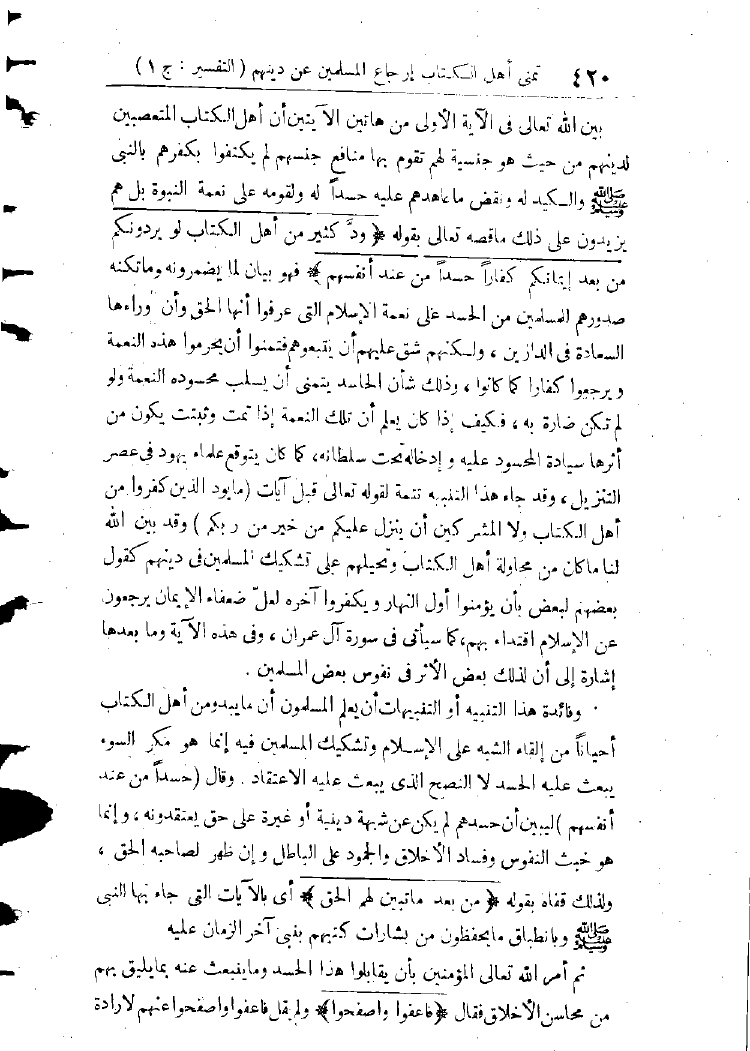 ٤٢٠ تمنى أهل الكتاب إرجاع المسلمين عن دينهم ( التفسير : ج ١ )
بين الله تعالى فى الآية الأولى من هاتين الآيتين أن أهل الكتاب المتعصبين
لدينهم من حيث هو جنسية لهم تقوم بها منافع جنسهم لم يكتفوا بكفرهم بالنبى
ﷺ والكيد له ونقض ماعاهدهم عليه حسداً له ولقومه على نعمة النبوة بل هم
يزيدون على ذلك ماقصه تعالى بقوله ﴿ ودَّ كثير من أهل الكتاب لو يردونكم
من بعد إيمانكم كفاراً حسداً من عند أنفسهم ﴾ فهو بيان لما يضمرونه وماتكنه
صدورهم للمسلمين من الحسد على نعمة الإسلام التى عرفوا أنها الحق وأن وراءها
السعادة فى الدارين ، ولكنهم شق عليهم أن يتبعوهم فتمنوا أن يحرموا هذه النعمة
ويرجعوا كفارا كما كانوا ، وذلك شأن الحاسد يتمنى أن يسلب محسوده النعمة ولو
لم تكن ضارة به ، فكيف إذا كان يعلم أن تلك النعمة إذا تمت وثبتت يكون من
أثرها سيادة المحسود عليه وإدخاله تحت سلطانه، كما كان يتوقع علماء يهود فى عصر
التنزيل ، وقد جاء هذا التنبيه تتمة لقوله تعالى قبل آيات (مايود الذين كفروا من
أهل الكتاب ولا المشركين أن ينزل عليكم من خير من ربكم ) وقد بين الله
لنا ماكان من محاولة أهل الكتاب وتحيلهم على تشكيك المسلمين فى دينهم كقول
بعضهم لبعض بأن يؤمنوا أول النهار ويكفروا آخره لعلّ ضعفاء الإيمان يرجعون
عن الإسلام اقتداء بهم، كما سيأتى فى سورة آل عمران ، وفى هذه الآية وما بعدها
إشارة إلى أن لذلك بعض الأثر فى نفوس بعض المسلمين .
وفائدة هذا التنبيه أو التنبيهات أن يعلم المسلمون أن مايبدو من أهل الكتاب
أحياناً من إلقاء الشبه على الإسلام وتشكيك المسلمين فيه إنما هو مكر السوء
يبعث عليه الحسد لا النصح الذى يبعث عليه الاعتقاد . وقال (حسداً من عند
أنفسهم ) ليبين أن حسدهم لم يكن عن شبهة دينية أو غيرة على حق يعتقدونه ، وإنما
هو خبث النفوس وفساد الأخلاق والجمود على الباطل وإن ظهر لصاحبه الحق ،
ولذلك قفاه بقوله ﴿ من بعد ماتبين لهم الحق ﴾ أى بالآيات التى جاء بها النبى
ﷺ وبانطباق مايحفظون من بشارات كتبهم بنبى آخر الزمان عليه
ثم أمر الله تعالى المؤمنين بأن يقابلوا هذا الحسد وماينبعث عنه بمايليق بهم
من محاسن الأخلاق فقال ﴿فاعفوا واصفحوا﴾ ولم يقل فاعفوا واصفحوا عنهم لارادة